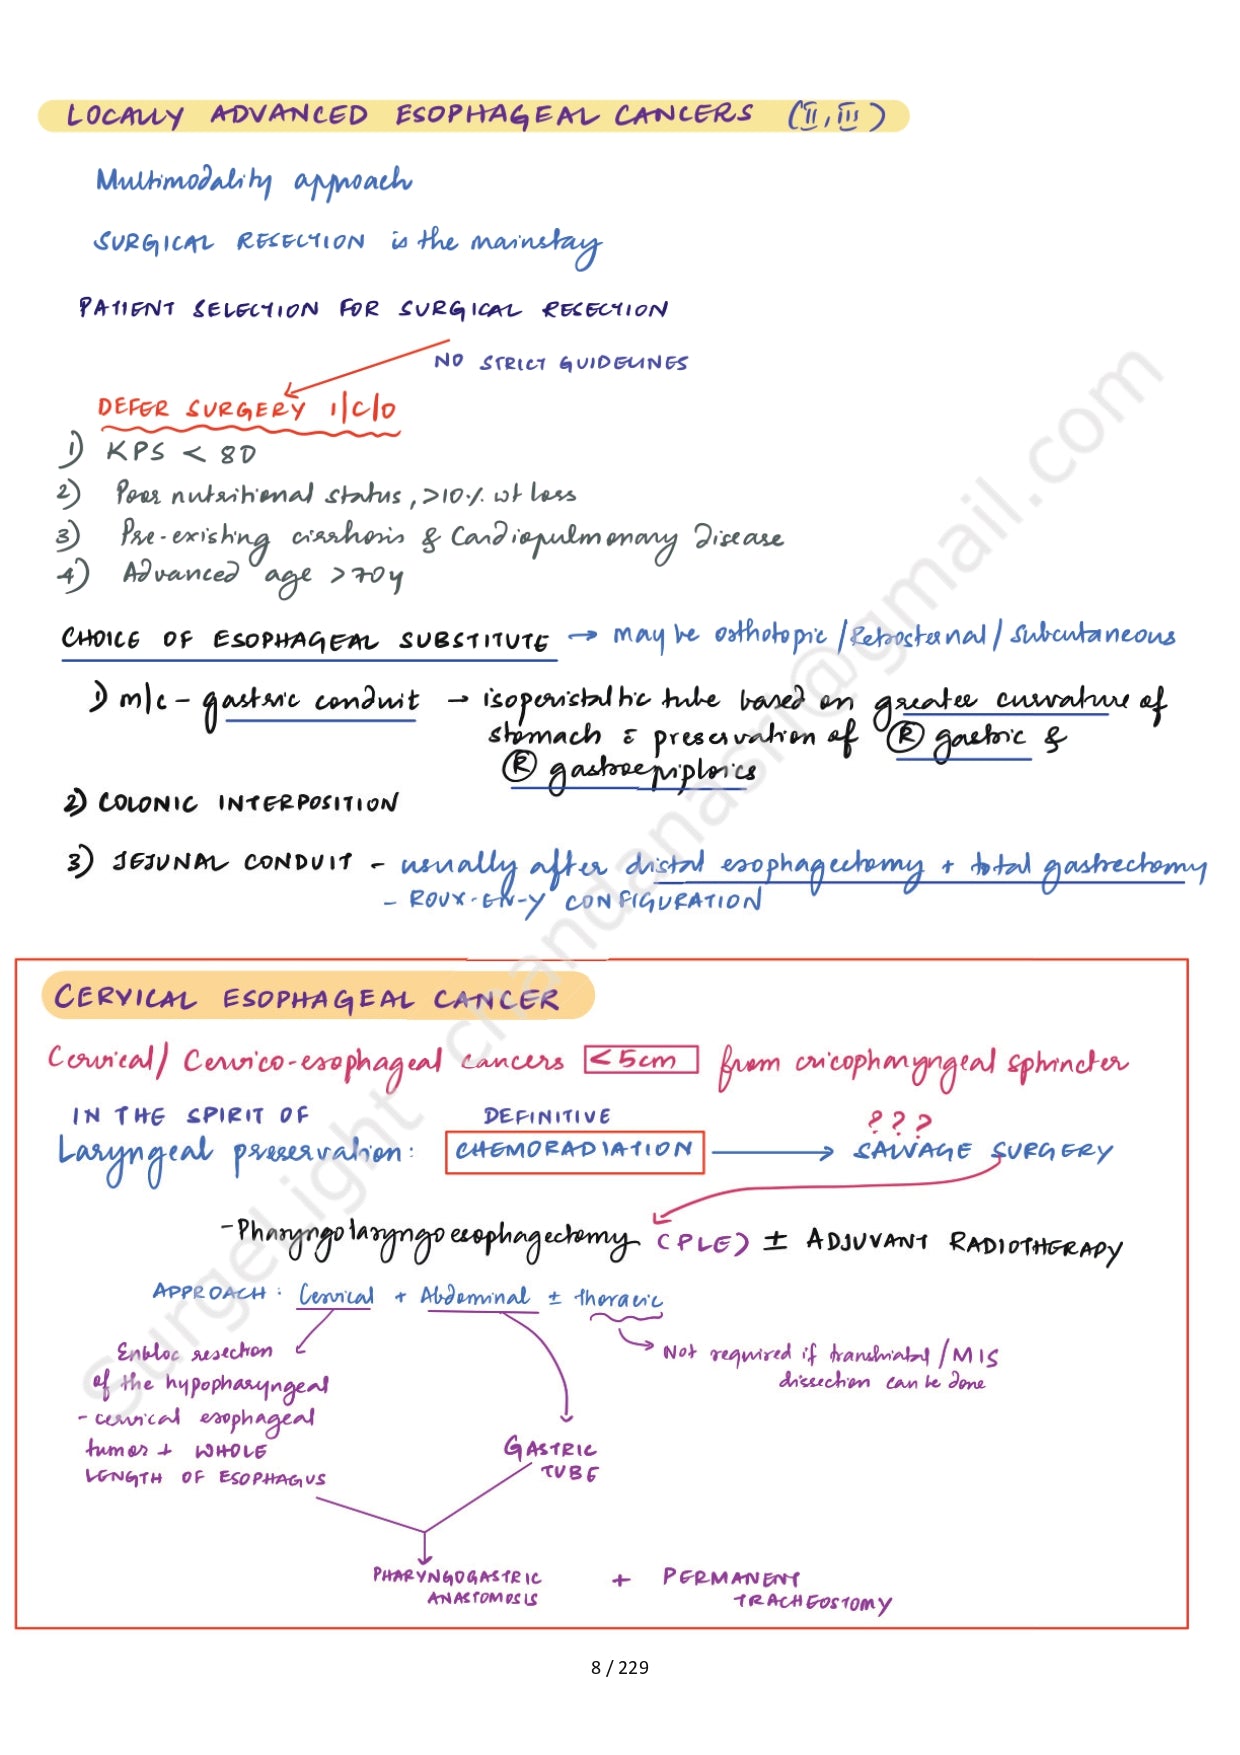 LOCALLY ADVANCED ESOPHAGEAL CANCERS (II, III)
Multimodality approach
SURGICAL RESECTION is the mainstay
PATIENT SELECTION FOR SURGICAL RESECTION
NO STRICT GUIDELINES
DEFER SURGERY I/C/O
1) KPS < 80
2) Poor nutritional status, >10% wt loss
3) Pre-existing cirrhosis & Cardiopulmonary Disease
4) Advanced age >70y
CHOICE OF ESOPHAGEAL SUBSTITUTE → may be orthotopic / Retrosternal / Subcutaneous
1) m/c - gastric conduit → isoperistaltic tube based on greater curvature of
stomach c̄ preservation of Ⓡ gastric &
Ⓡ gastroepiploics
2) COLONIC INTERPOSITION
3) JEJUNAL CONDUIT - usually after distal esophagectomy + total gastrectomy
- ROUX-EN-Y CONFIGURATION
CERVICAL ESOPHAGEAL CANCER
Cervical/ Cervico-esophageal cancers <5cm from cricopharyngeal sphincter
IN THE SPIRIT OF DEFINITIVE ???
Laryngeal preservation: CHEMORADIATION → SALVAGE SURGERY
- Pharyngolaryngoesophagectomy (PLE) ± ADJUVANT RADIOTHERAPY
APPROACH: Cervical + Abdominal ± thoracic
Enbloc resection
of the hypopharyngeal
- cervical esophageal
tumor + WHOLE
LENGTH OF ESOPHAGUS
Not required if transhiatal / MIS
dissection can be done
GASTRIC
TUBE
PHARYNGOGASTRIC + PERMANENT
ANASTOMOSIS TRACHEOSTOMY
surgeLight chandanasri@gmail.com
8 / 229